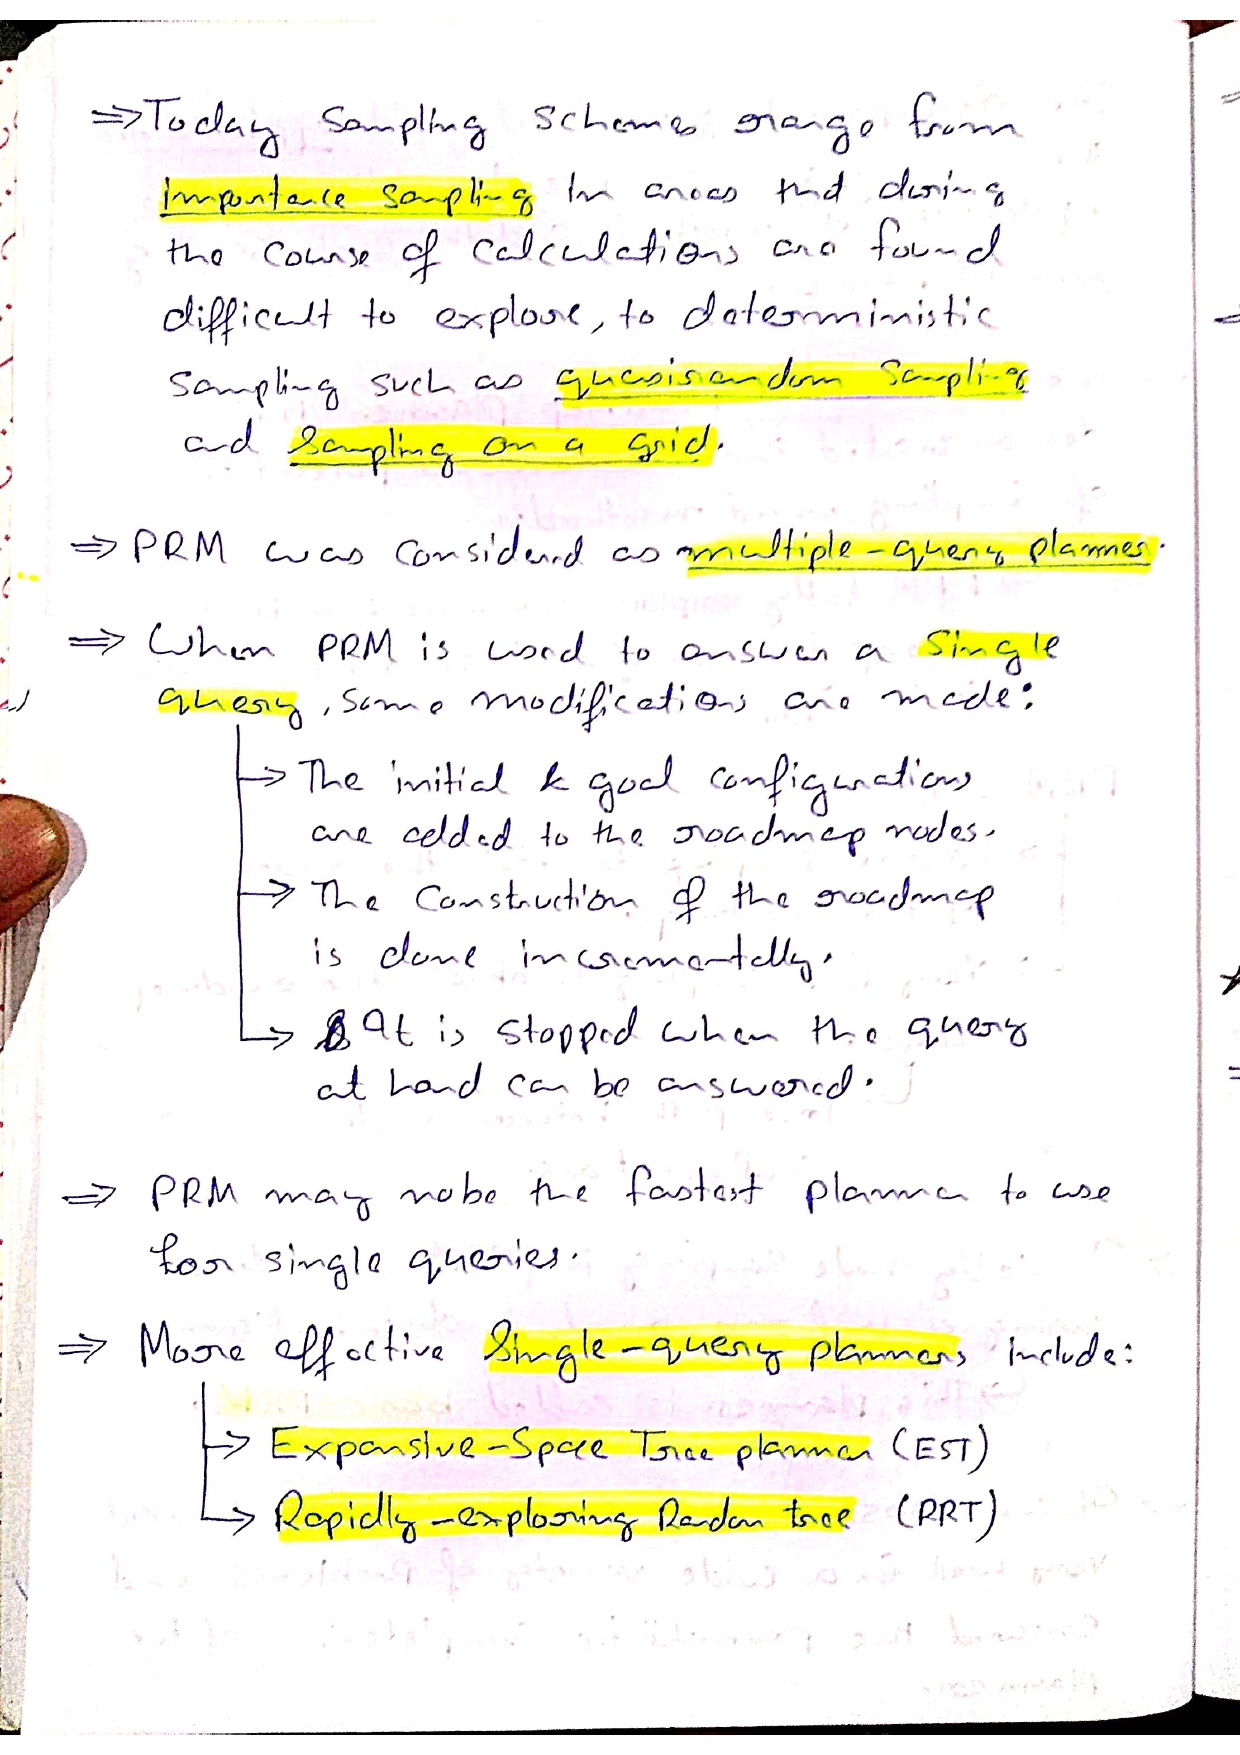 ⇒ Today Sampling schemes range from
Importance Sampling in areas that during
the course of calculations are found
difficult to explore, to deterministic
sampling such as quasirandom Sampling
and Sampling on a grid.
⇒ PRM was considerd as multiple-query planner.
⇒ When PRM is used to answer a Single
query, some modifications are made:
→ The initial & goal configurations
are added to the roadmap nodes.
→ The Construction of the roadmap
is done incrementally.
→ It is stopped when the query
at hand can be answered.
⇒ PRM may nobe the fastest planner to use
for single queries.
⇒ More effective Single-query planners include:
→ Expansive-Space Tree planner (EST)
→ Rapidly-exploring Random tree (RRT)